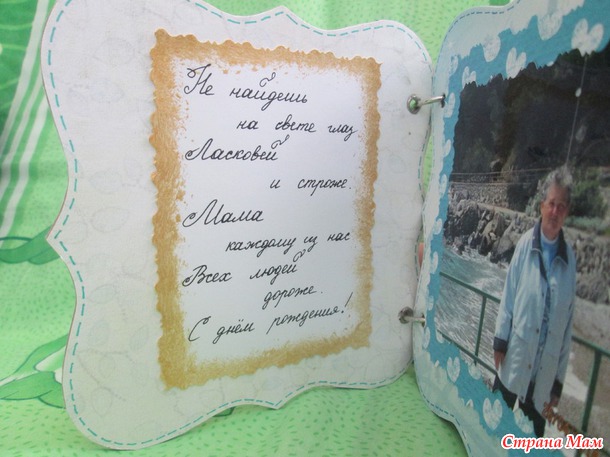 Не найдешь
на свете глаз
Ласковей
и строже.
Мама
каждому из нас
Всех людей
дороже.
С днём рождения!
Страна Мам